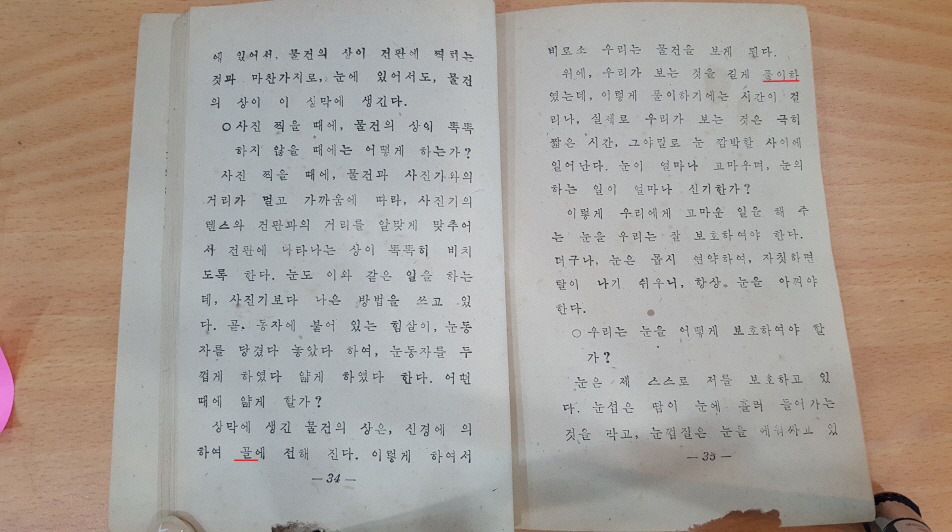 에 있어서, 물건의 상이 건판에 찍히는
것과 마찬가지로, 눈에 있어서도, 물건
의 상이 이 상막에 생긴다.
○사진 찍을 때에, 물건의 상이 똑똑
하지 않을 때에는 어떻게 하는가?
사진 찍을 때에, 물건과 사진기와의
거리가 멀고 가까움에 따라, 사진기의
렌스와 건판과의 거리를 알맞게 맞추어
서 건판에 나타나는 상이 똑똑히 비치
도록 한다. 눈도 이와 같은 일을 하는
데, 사진기보다 나은 방법을 쓰고 있
다. 곧, 동자에 붙어 있는 힘살이, 눈동
자를 당겼다 놓았다 하여, 눈동자를 두
껍게 하였다 얇게 하였다 한다. 어떤
때에 얇게 할가?
상막에 생긴 물건의 상은, 신경에 의
하여 골에 전해 진다. 이렇게 하여서
—34—
비로소 우리는 물건을 보게 된다.
위에, 우리가 보는 것을 길게 풀이하
였는데, 이렇게 풀이하기에는 시간이 걸
리나, 실제로 우리가 보는 것은 극히
짧은 시간, 그야말로 눈 깜박할 사이에
일어난다. 눈이 얼마나 고마우며, 눈의
하는 일이 얼마나 신기한가?
이렇게 우리에게 고마운 일을 해 주
는 눈을 우리는 잘 보호하여야 한다.
더구나, 눈은 몹시 연약하여, 자칫하면
탈이 나기 쉬우니, 항상 눈을 아껴야
한다.
○우리는 눈을 어떻게 보호하여야 할
가?
눈은 제 스스로 저를 보호하고 있
다. 눈섭은 땀이 눈에 흘러 들어가는
것을 막고, 눈껍질은 눈을 에워싸고 있
—35—